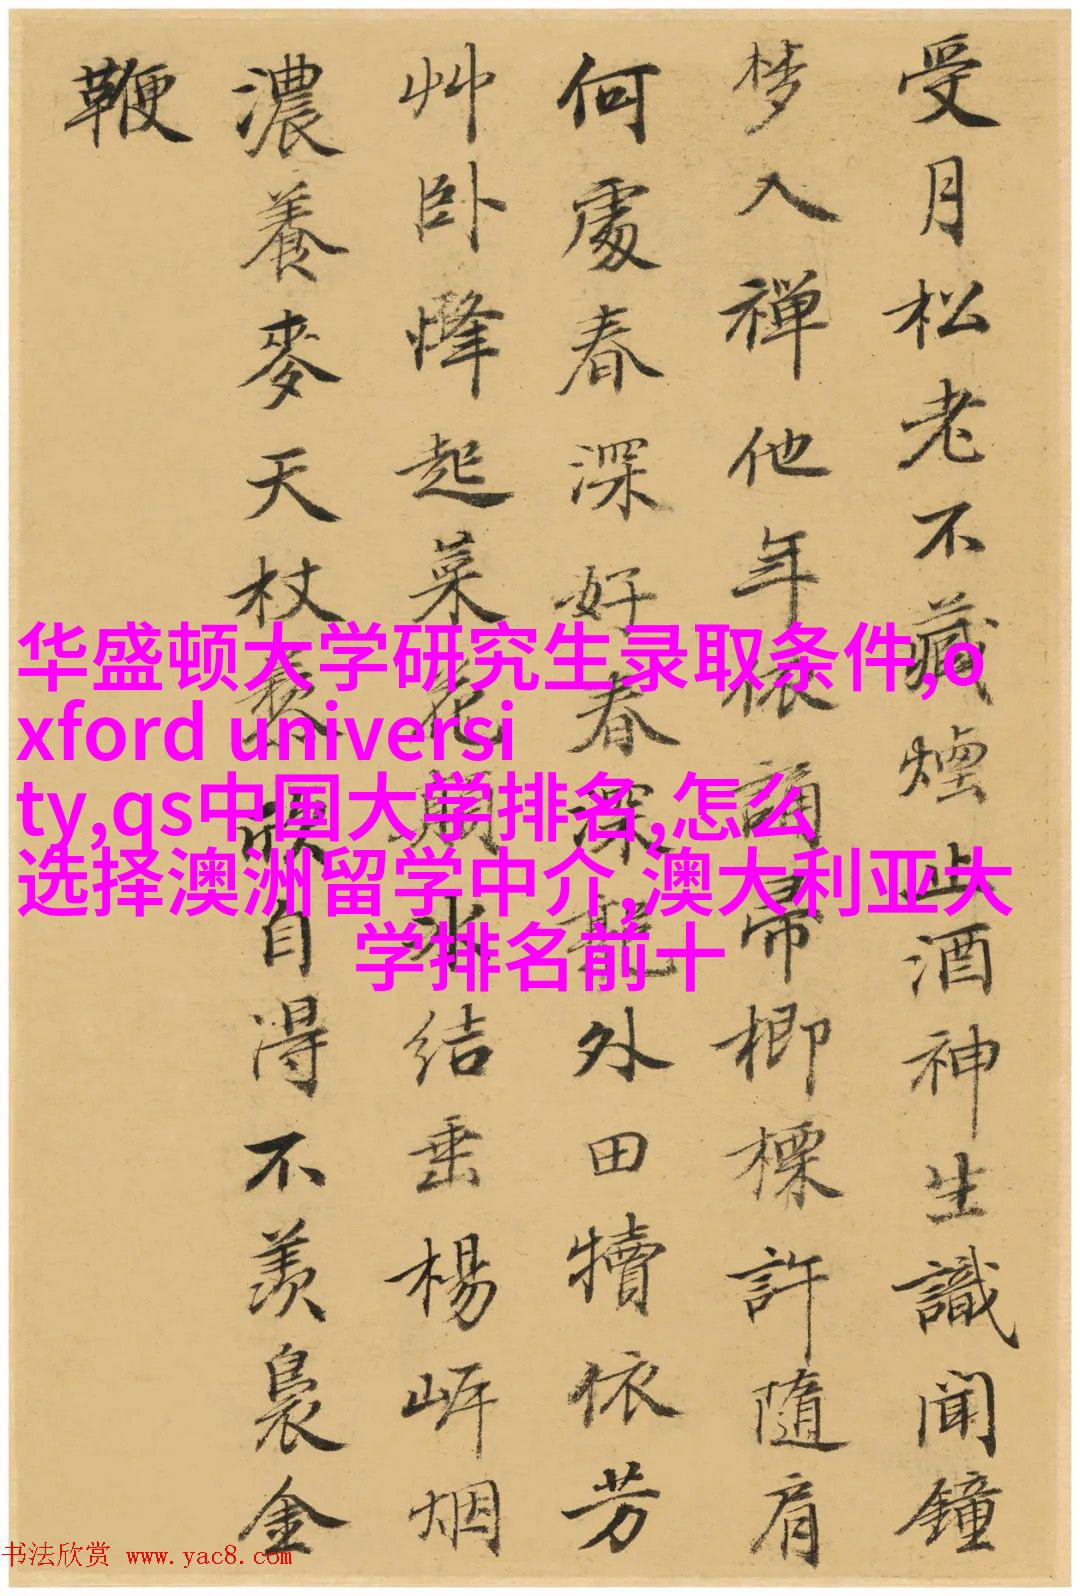 受月松老不藏煙止酒神生識聞鐘
梦入禅他年依誦帚楖檪許隨肩
何處春深好春深郭外田犢依芳
艸卧烽起菜花湖水结垂楊岍烟
濃養麥天杖藜自得不羡裊金
鞭
华盛顿大学研究生录取条件,o
xford universi
ty,qs中国大学排名,怎么
选择澳洲留学中介,澳大利亚大
学排名前十
书法欣赏 www.yac8.com